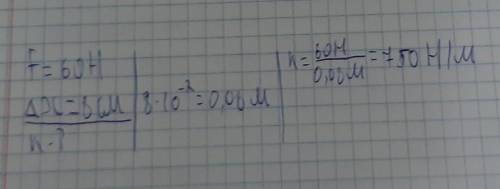 F = 60Н
Δx = 8см
к - ?
8·10⁻² = 0,08м
к = 60Н / 0,08м = 750 Н/м